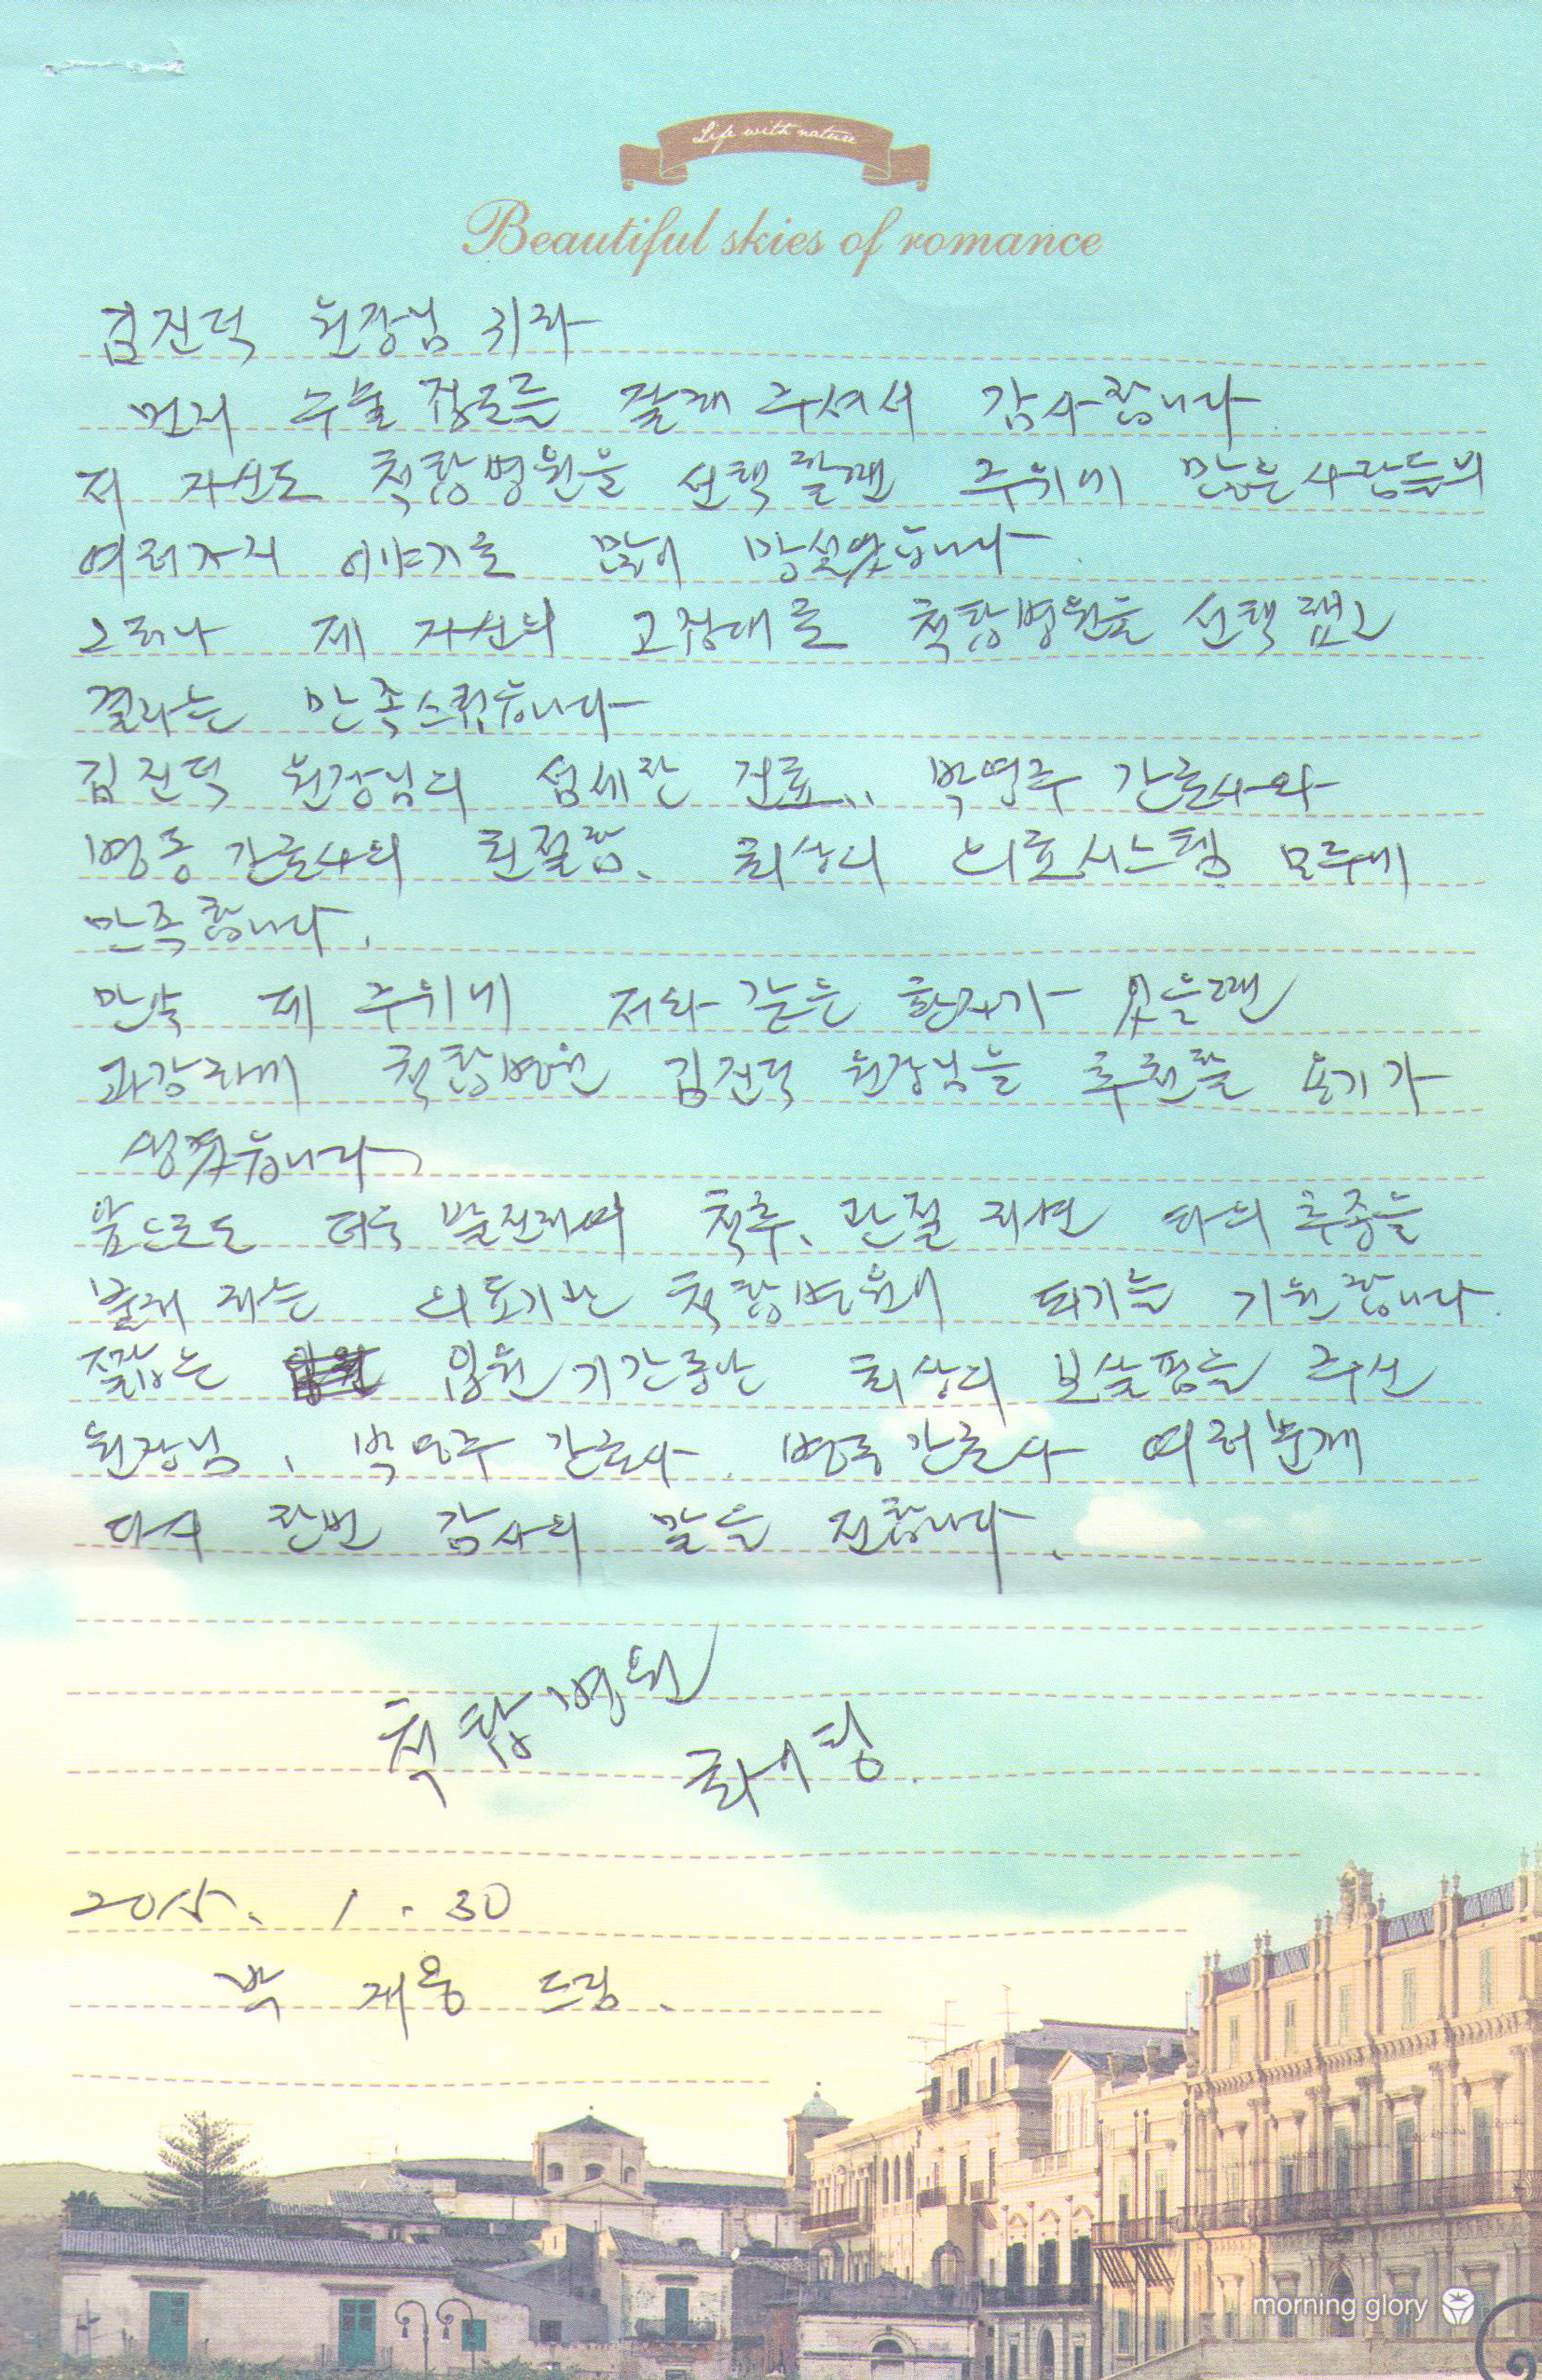 Life with nature
Beautiful skies of romance
김진덕 원장님 귀하
먼저 수술 집도를 잘해 주셔서 감사합니다.
저 자신도 척탑병원을 선택할땐 주위에 많은 사람들의
여러가지 이야기로 많이 망설였습니다.
그러나 제 자신의 고집대로 척탑병원을 선택했고
결과는 만족스럽습니다
김진덕 원장님의 섬세한 진료.. 박영주 간호사와
병동 간호사의 친절함, 최상의 의료시스템 모두에
만족합니다.
만약 제 주위에 저와 같은 환자가 있을땐
과감하게 척탑병원 김진덕 원장님을 추천할 용기가
생겼습니다
앞으로도 더욱 발전하여 척추, 관절 하면 타의 추종을
불허 하는 의료기관 척탑병원이 되기를 기원합니다.
짧은 입원기간동안 최상의 보살핌을 주신
원장님, 박영주 간호사. 병동간호사 여러분께
다시 한번 감사의 말을 전합니다.
척탑병원
화이팅.
2015. 1. 30
박 재용 드림.
morning glory